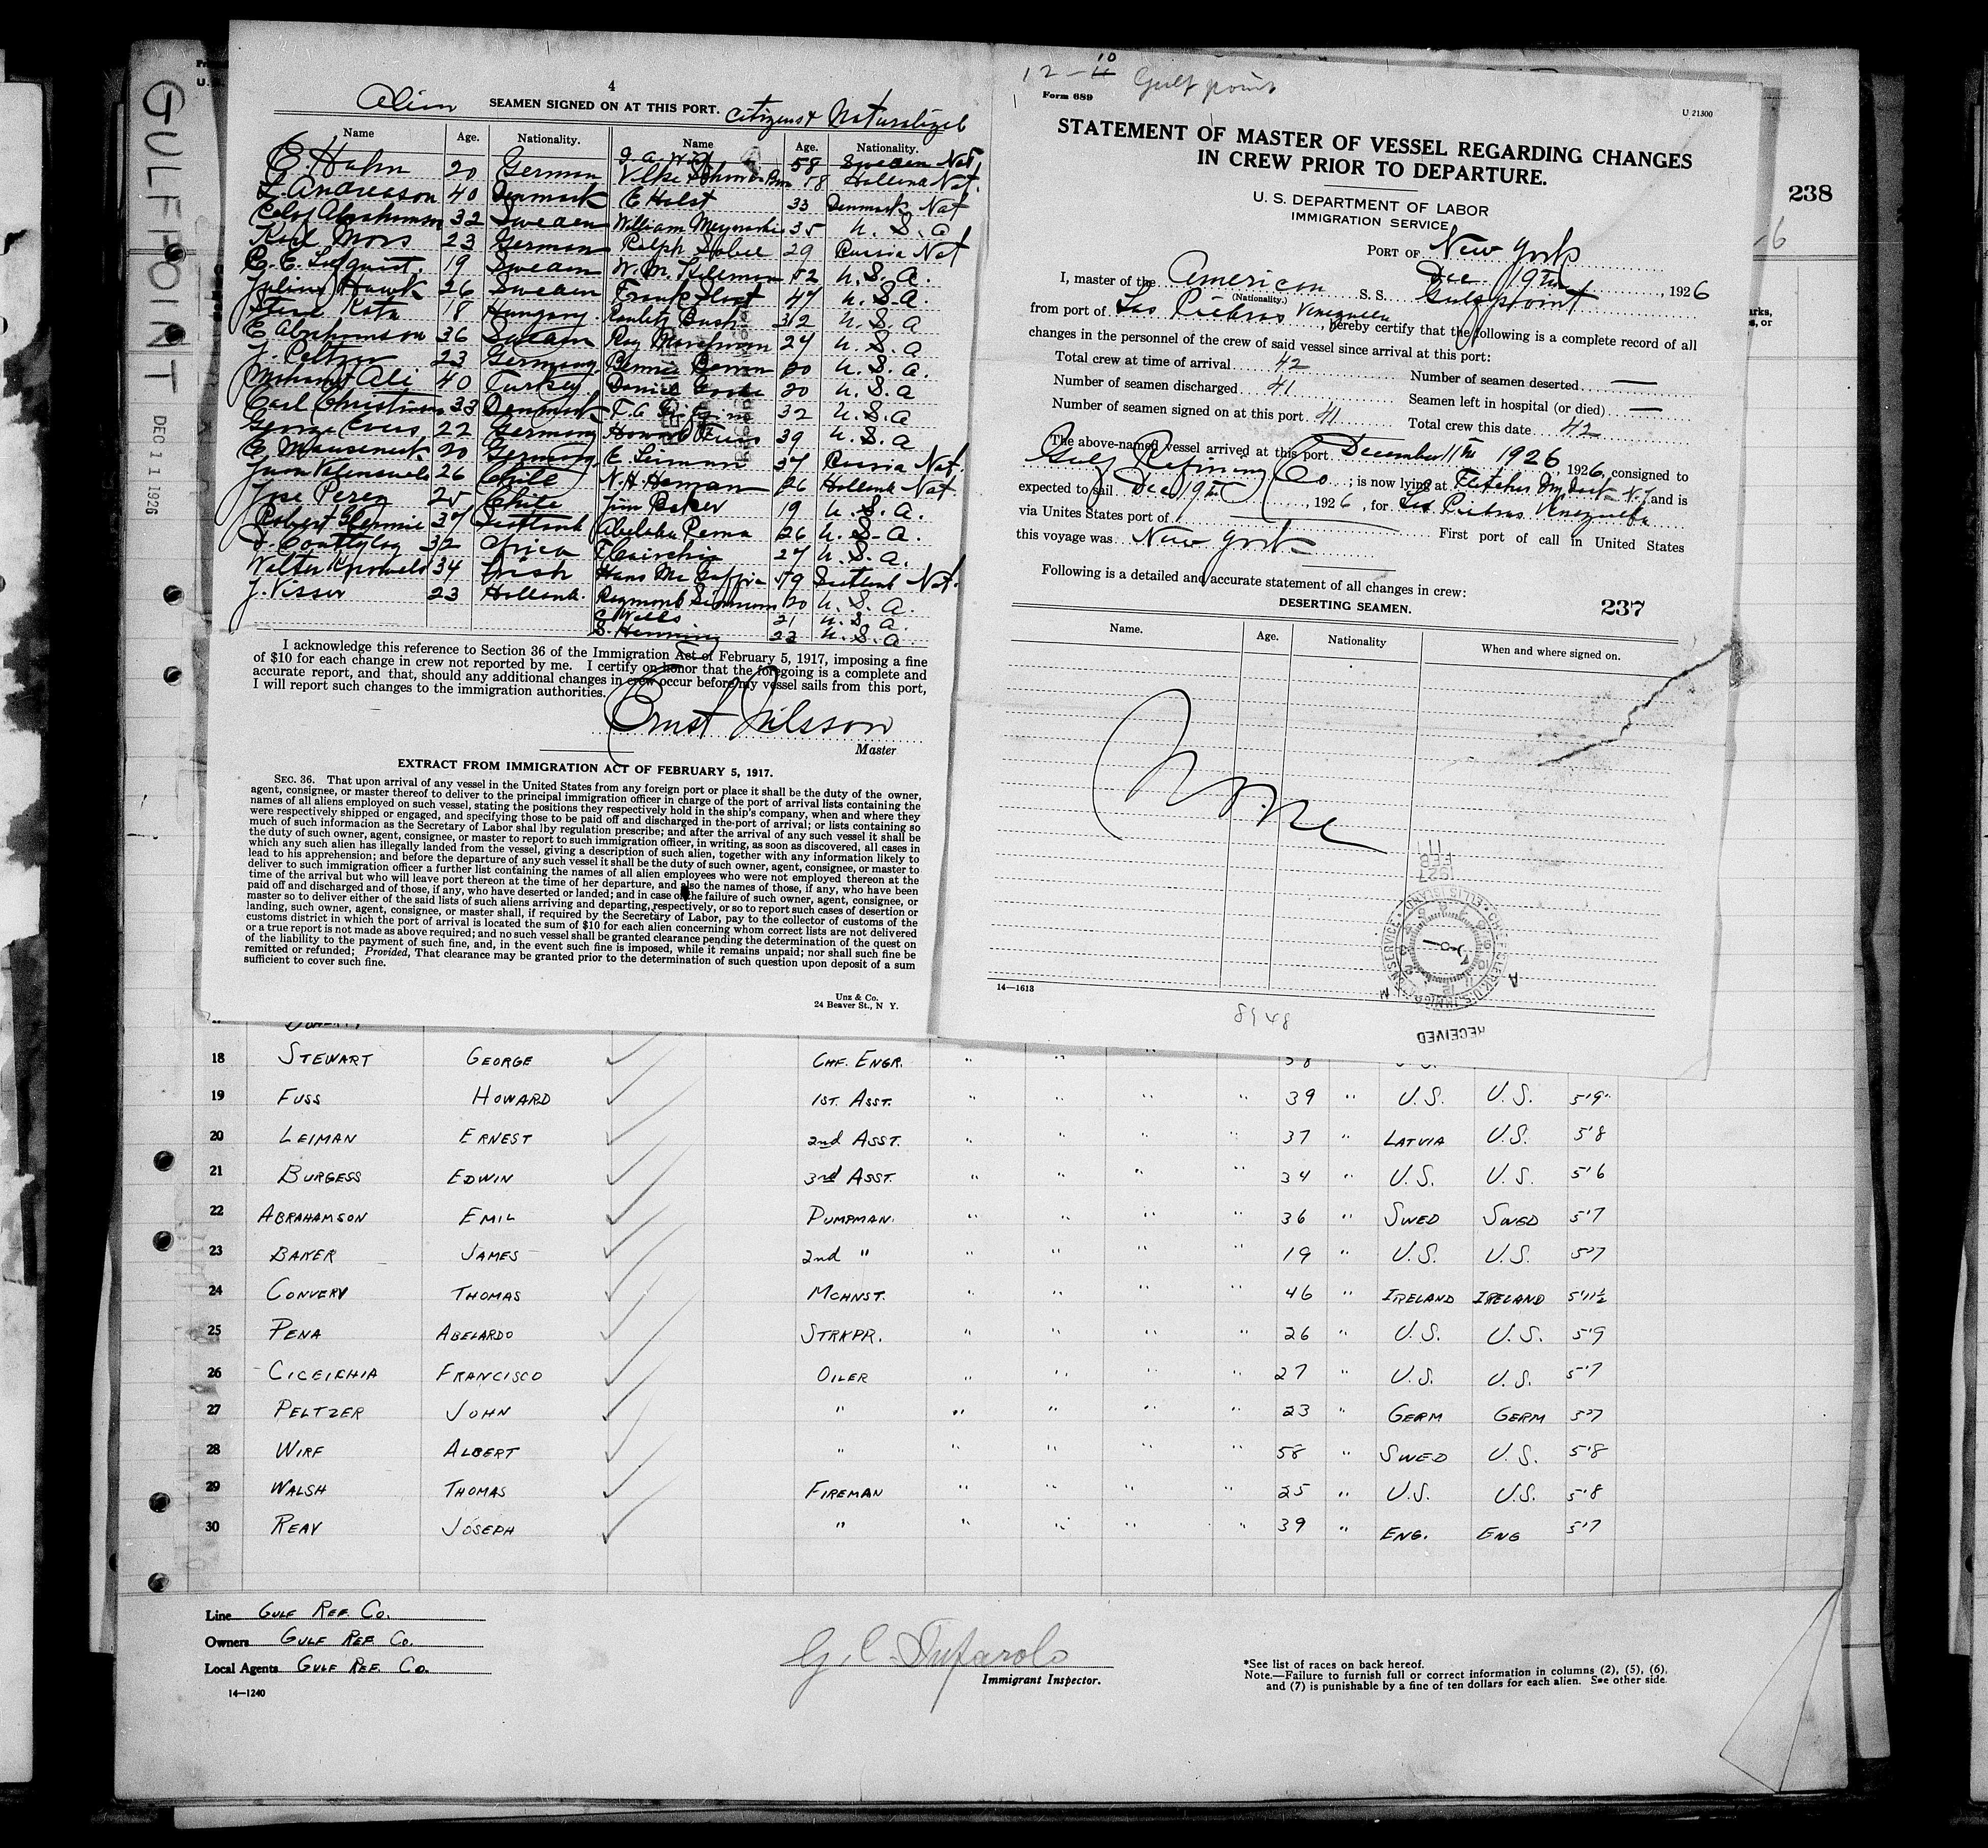 GULFPOINT DEC 11 1926
4
Alien SEAMEN SIGNED ON AT THIS PORT. Citizens & Naturalized
Name Age. Nationality. Name Age. Nationality.
E. Hahn 20 German 58 Sweden Nat
L. Andreasson 40 Denmark 58 Holland Nat.
Abrahamson 32 Sweden E Holst 33 Denmark Nat
Karl Mors 23 German William 35 U. S. A
19 Sweden Ralph 29 Russia Nat
Julius Hawk 26 Sweden W. M. Stillman 52 U. S. A.
Steve Kota 18 Hungary Frank 47 U. S. A.
E Abrahamson 36 Sweden Bush 32 U. S. A
J. Peltzer 23 Germany Roy 24 U. S. A
Mohamet Ali 40 Turkey Bennie 20 U. S. A.
Carl Christiansen 33 Denmark Daniel 20 U. S. A
George Evers 22 Germany 32 U. S. A
E. 20 Germany Howard Fuss 39 U. S. A
Juan Valenzuela 26 Chile E Leiman 37 Russia Nat.
Jose Perez 25 Chile N. H. Haman 26 Holland Nat
Robert Glennie 37 Scotland Jim Baker 19 U. S. A.
32 Africa Abelaba Pena 26 U. S. A.
Walter 34 Irish 27 U. S. A.
J. Visser 23 Holland. Hans Mc Guffie 59 Scotland Nat.
Raymond Simmons 20 U. S. A.
C Wells 21 U. S. A.
S. Henning 22 U. S. A
I acknowledge this reference to Section 36 of the Immigration Act of February 5, 1917, imposing a fine
of $10 for each change in crew not reported by me. I certify on honor that the foregoing is a complete and
accurate report, and that, should any additional changes in crew occur before my vessel sails from this port,
I will report such changes to the immigration authorities.
Ernst Nilsson
Master
EXTRACT FROM IMMIGRATION ACT OF FEBRUARY 5, 1917.
SEC. 36. That upon arrival of any vessel in the United States from any foreign port or place it shall be the duty of the owner,
agent, consignee, or master thereof to deliver to the principal immigration officer in charge of the port of arrival lists containing the
names of all aliens employed on such vessel, stating the positions they respectively hold in the ship's company, when and where they
were respectively shipped or engaged, and specifying those to be paid off and discharged in the port of arrival; or lists containing so
much of such information as the Secretary of Labor shal lby regulation prescribe; and after the arrival of any such vessel it shall be
the duty of such owner, agent, consignee, or master to report to such immigration officer, in writing, as soon as discovered, all cases in
which any such alien has illegally landed from the vessel, giving a description of such alien, together with any information likely to
lead to his apprehension; and before the departure of any such vessel it shall be the duty of such owner, agent, consignee, or master to
deliver to such immigration officer a further list containing the names of all alien employees who were not employed thereon at the
time of the arrival but who will leave port thereon at the time of her departure, and also the names of those, if any, who have been
paid off and discharged and of those, if any, who have deserted or landed; and in case of the failure of such owner, agent, consignee, or
master so to deliver either of the said lists of such aliens arriving and departing, respectively, or so to report such cases of desertion or
landing, such owner, agent, consignee, or master shall, if required by the Secretary of Labor, pay to the collector of customs of the
customs district in which the port of arrival is located the sum of $10 for each alien concerning whom correct lists are not delivered
or a true report is not made as above required; and no such vessel shall be granted clearance pending the determination of the quest on
of the liability to the payment of such fine, and, in the event such fine is imposed, while it remains unpaid; nor shall such fine be
remitted or refunded; Provided, That clearance may be granted prior to the determination of such question upon deposit of a sum
sufficient to cover such fine.
Unz & Co.
24 Beaver St., N Y.
12-10 Gulf point
Form 689
U 21300
STATEMENT OF MASTER OF VESSEL REGARDING CHANGES
IN CREW PRIOR TO DEPARTURE.
U. S. DEPARTMENT OF LABOR
IMMIGRATION SERVICE
238
PORT OF New York
Dec 19th, 1926
I, master of the American S. S. Gulfpoint
(Nationality.)
from port of Las Piedras Venezuela, hereby certify that the following is a complete record of all
changes in the personnel of the crew of said vessel since arrival at this port:
Total crew at time of arrival 42 Number of seamen deserted —
Number of seamen discharged 41 Seamen left in hospital (or died) —
Number of seamen signed on at this port 41 Total crew this date 42
The above-named vessel arrived at this port December 11th 1926, 1926, consigned to
Gulf Refining Co.; is now lying at Fletcher Dry Dock N.J. and is
expected to sail Dec 19th, 1926, for Las Piedras Venezuela
via Unites States port of First port of call in United States
this voyage was New York
Following is a detailed and accurate statement of all changes in crew:
DESERTING SEAMEN. 237
Name. Age. Nationality When and where signed on.
None
FEB 1927
CHIEF CLERK U.S. IMMIGRATION SERVICE ELLIS ISLAND
A M
RECEIVED
14—1613
8948
18 STEWART GEORGE CHF. ENGR. " " " 58
19 FUSS HOWARD 1ST. ASST. " " " " 39 " U.S. U.S. 5'9"
20 LEIMAN ERNEST 2nd ASST. " " " " 37 " LATVIA U.S. 5'8
21 BURGESS EDWIN 3rd ASST. " " " " 34 " U.S. U.S. 5'6
22 ABRAHAMSON EMIL PUMPMAN. " " " " 36 " SWED SWED 5'7
23 BAKER JAMES 2nd " " " " " 19 " U.S. U.S. 5'7
24 CONVERY THOMAS MCHNST. " " " " 46 " IRELAND IRELAND 5'11½
25 PENA ABELARDO STRKPR. " " " " 26 " U.S. U.S. 5'9
26 CICEIRHIA FRANCISCO OILER " " " " 27 " U.S. U.S. 5'7
27 PELTZER JOHN " " " " " 23 " GERM GERM 5'7
28 WIRF ALBERT " " " " " 58 " SWED U.S. 5'8
29 WALSH THOMAS FIREMAN " " " " 25 " U.S. U.S. 5'8
30 REAY JOSEPH " " " " " 39 " ENG. ENG 5'7
Line GULF REF. CO.
Owners GULF REF. CO.
Local Agents GULF REF. CO.
14—1240
G. C.
Immigrant Inspector.
*See list of races on back hereof.
Note.—Failure to furnish full or correct information in columns (2), (5), (6),
and (7) is punishable by a fine of ten dollars for each alien. See other side.